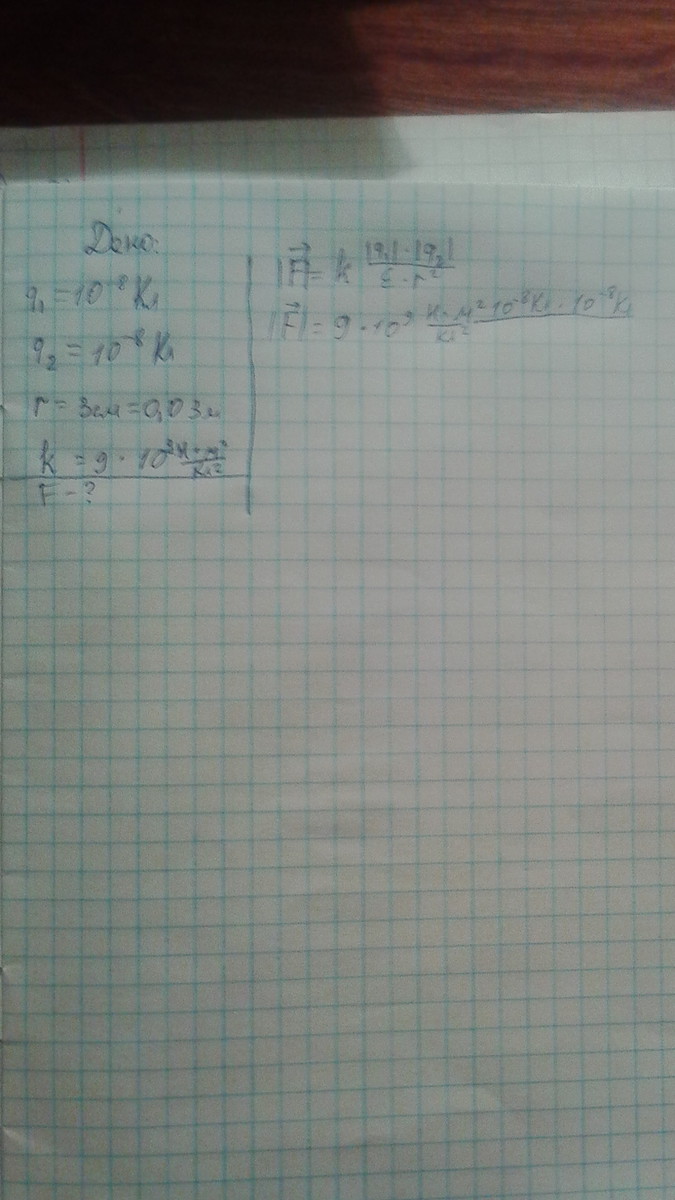 Дано:
q₁ = 10⁻⁸ Кл
q₂ = 10⁻⁸ Кл
r = 3см = 0,03м
k = 9 · 10⁹ Н·м²/Кл²
F - ?
|F⃗| = k |q₁| · |q₂| / ε · r²
|F⃗| = 9 · 10⁹ Н·м²/Кл² 10⁻⁸Кл · 10⁻⁸Кл